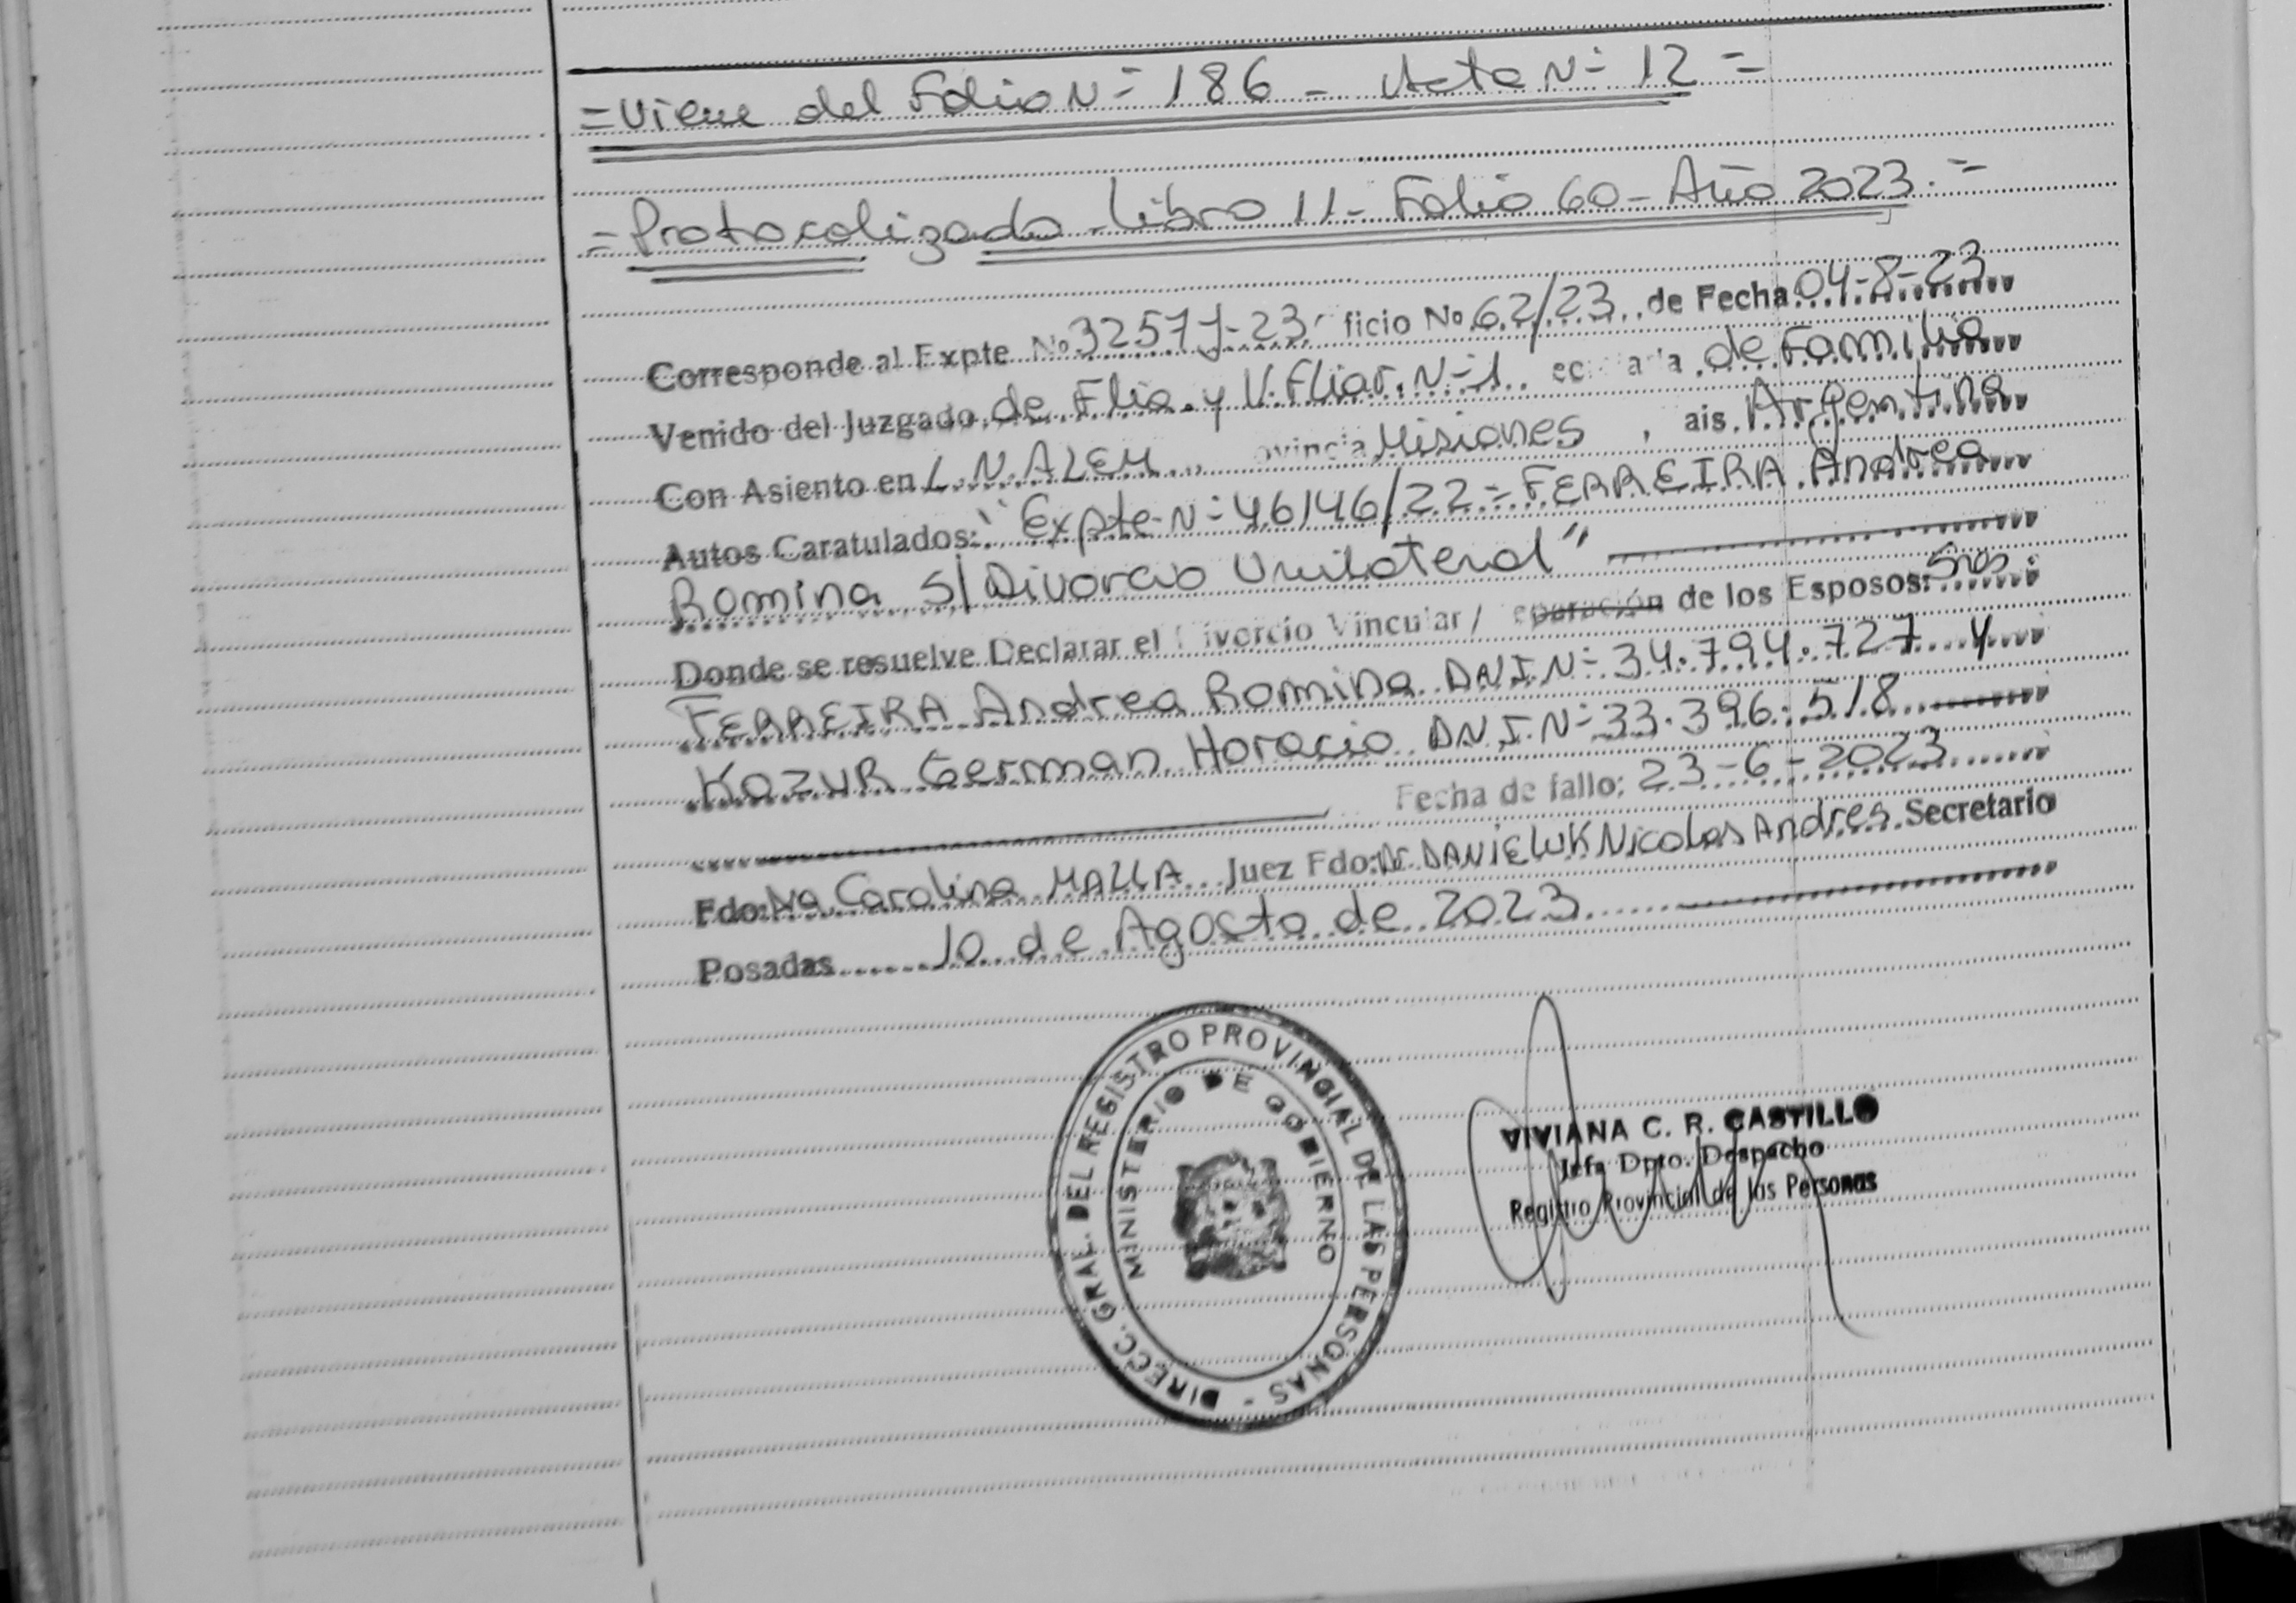 = Viene del Folio N= 186 - Acta N= 12 =
= Protocolizado - Libro 11 - Folio 60 - Año 2023. =
Corresponde al Expte No 3257J-23 ficio No 62/23 de Fecha 04-8-23
Venido del Juzgado de Flia. y V. Fliar. N=1 de Familia
Con Asiento en L.N. ALEM ovincia Misiones, ais Argentina
Autos Caratulados: "Expte N= 46146/22 = FERREIRA Andrea
Romina S/ Divorcio Unilateral"
Donde se resuelve Declarar el ivorcio Vincular / eparación de los Esposos: Sres.
FERREIRA Andrea Romina DNI N= 34.794.727 y
KOZUR German Horacio DNI N= 33.396.518
Fecha de fallo: 23-6-2023
Fdo: Carolina MALLA Juez Fdo: Dr. DANIELUK Nicolas Andres Secretario
Posadas 10 de Agosto de 2023
DIRECC. GRAL. DEL REGISTRO PROVINCIAL DE LAS PERSONAS -
MINISTERIO DE GOBIERNO
VIVIANA C. R. CASTILLO
Jefa Dpto. Despacho
Registro Provincial de las Personas